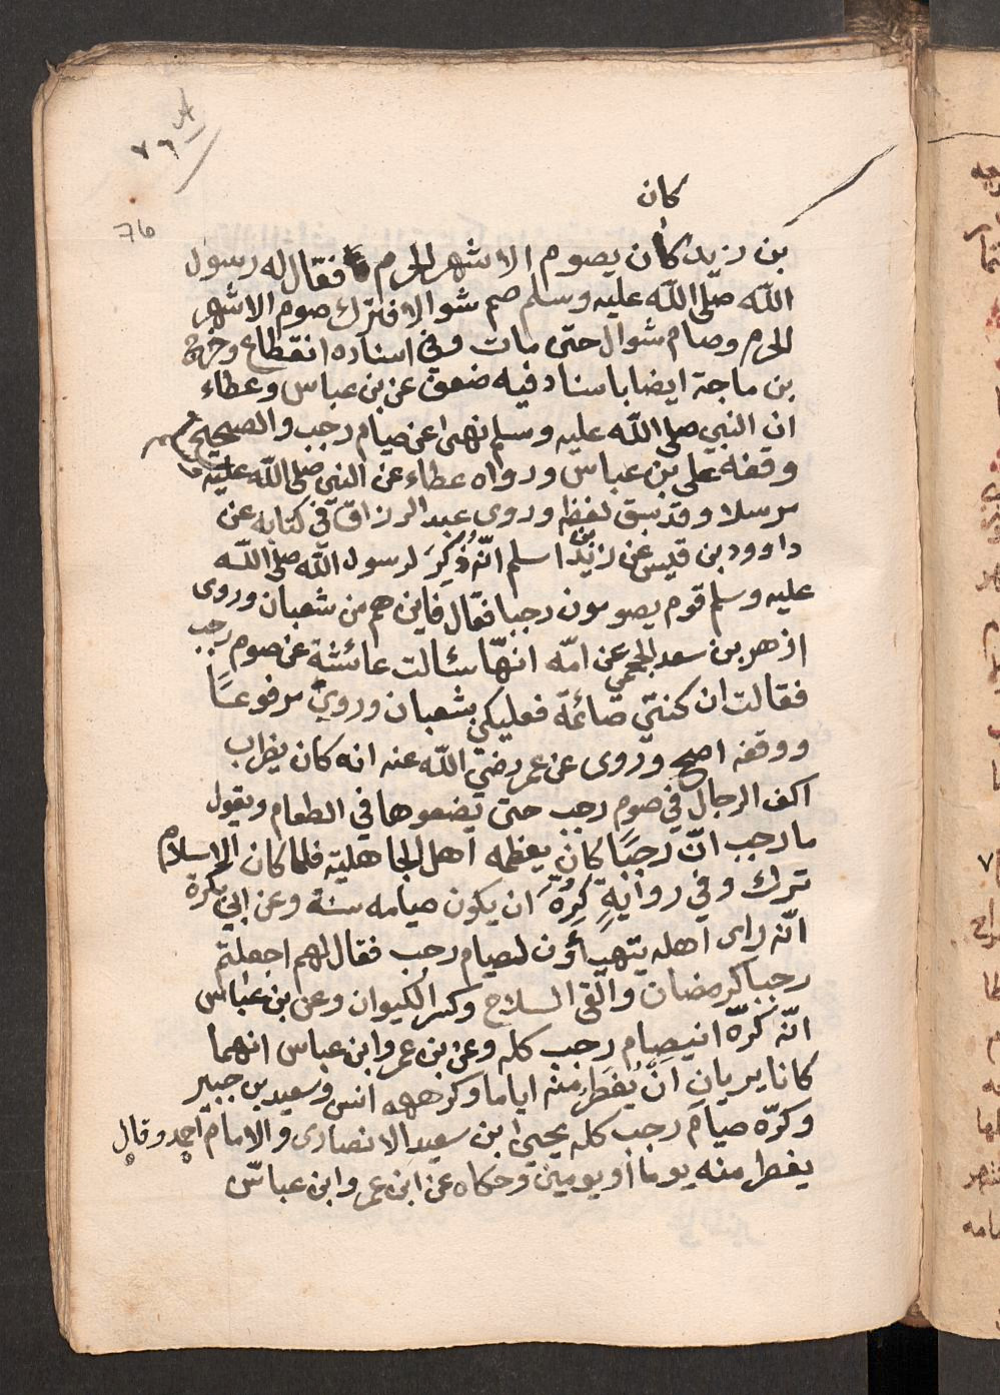 ٧٦
76
كان
بن زيد كان يصوم الاشهر الحرم فقال له رسول
الله صلى الله عليه وسلم صم شوالا فترك صوم الاشهر
الحرم وصام شوال حتى مات وفي اسناده انقطاع وخرج
بن ماجة ايضا باسناد فيه ضعف عن بن عباس وعطاء
ان النبي صلى الله عليه وسلم نهى عن صيام رجب والصحيح
وقفه على بن عباس ورواه عطاء عن النبي صلى الله عليه
مرسلا وقد سبق لفظه وروى عبد الرزاق في كتابه عن
داوود بن قيس عن زيد بن اسلم انّه ذُكِرَ لرسول الله صلى الله
عليه وسلم قوم يصومون رجبا فقال فاين هم من شعبان وروى
ازهر بن سعد الجمحي عن امّه انهّا سئالت عائشة عن صوم رجب
فقالت ان كنتي صائمة فعليكي بشعبان وروي مرفوعًا
ووقفه اصح وروى عن عمر رضي الله عنه انه كان يظراب
اكف الرجال في صوم رجب حتى يضعوها في الطعام ويقول
ما رجب انّ رجبًا كان يعظمه اهل الجاهلية فلما كان الاسلام
ترك وفي روايةٍ كرِهَ ان يكون صيامه سنة وعن ابي بكرة
انّه راى اهله يتهيأون لصيام رجب فقال لهم اجعلتم
رجبا كرمضان والقى السلاح وكسر الكيوان وعن بن عباس
انّه كَرّه ان يصام رجب كله وعن بن عمر وابن عباس انهما
كانا يريان انّ يُفطَر منه اياما وكرهه انس وسعيد بن جبير
وكرّه صيام رجب كله يحيى ابن سعيد الانصارى والامام احمد وقال
يفطر منه يوما أو يومين وحكاه عن ابن عمر وابن عباسّ